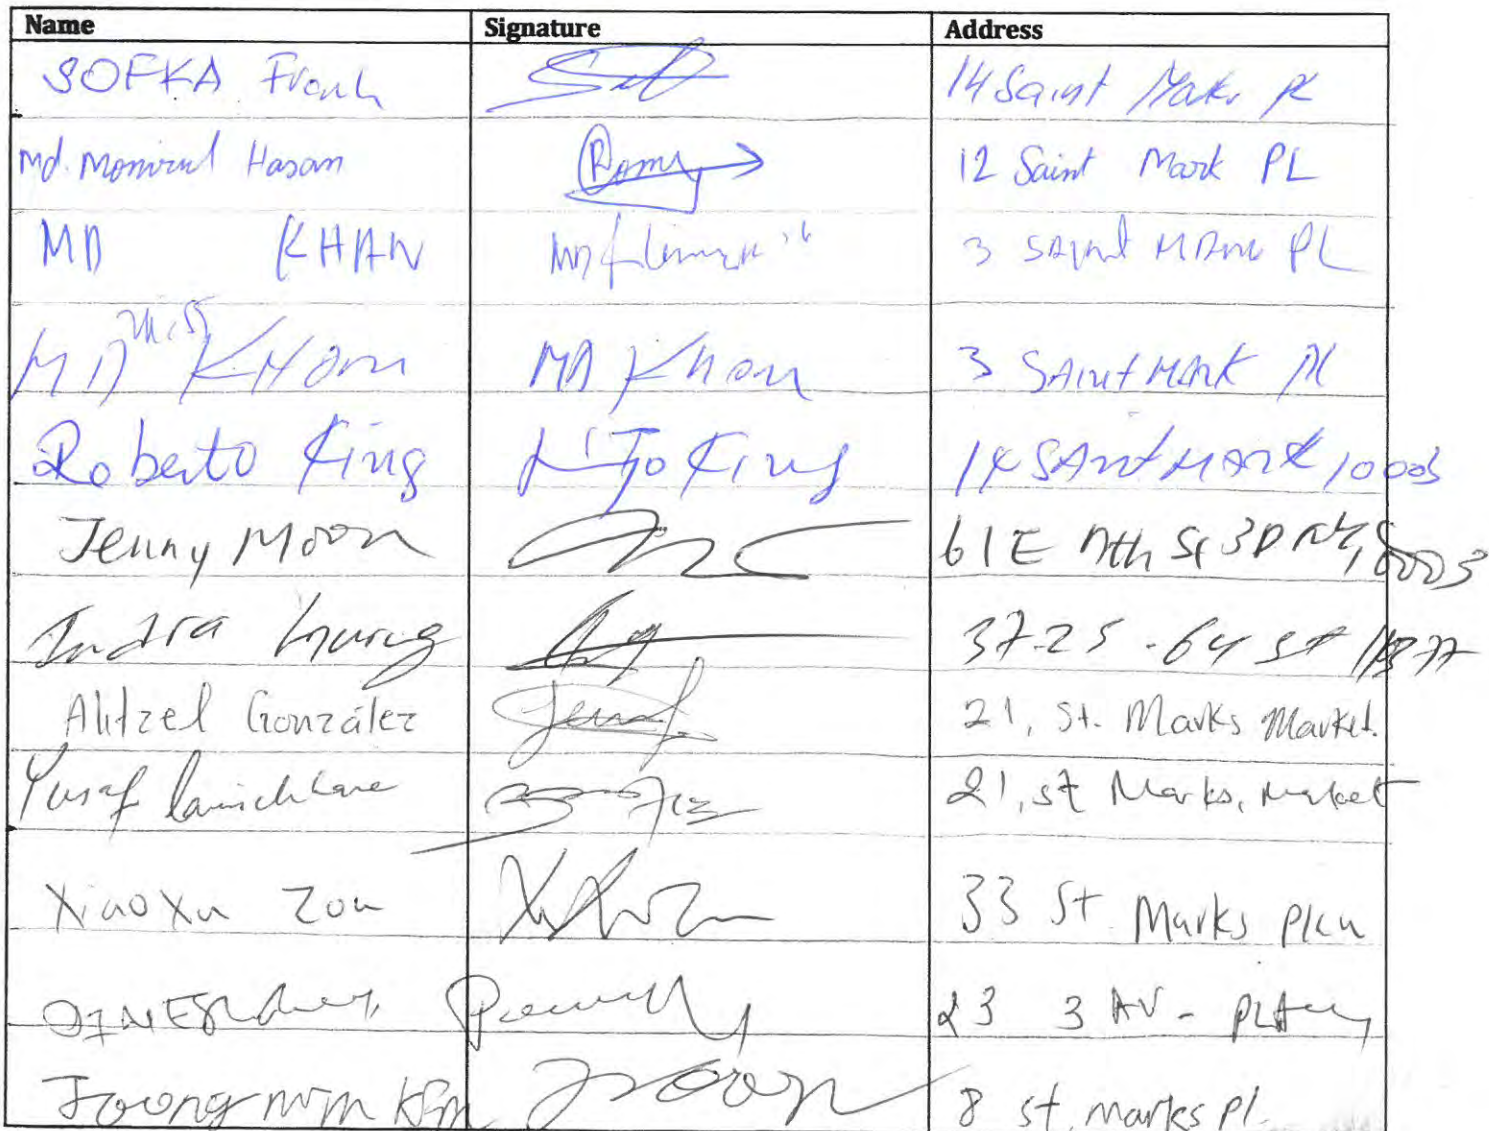 Name Signature Address
SOFKA Frank 14 Saint Maks pl
Md. Monirul Hasan Romy 12 Saint Mark PL
MD KHAN MD 3 SAINT MARK PL
MD KHAN MD Khan 3 SAINT MARK Pl
Roberto King King 14 SAINT MARK 10003
Jenny Moon 61 E St 3D NY, 10003
Indra Gurung 37-25 - 64 St 11377
Alitzel González 21, St. Marks Market.
Yusuf 21, st Marks, Market
XiaoXu Zou 33 St Marks
23 3 AV -
Joongmin Kim 8 st. marks pl.